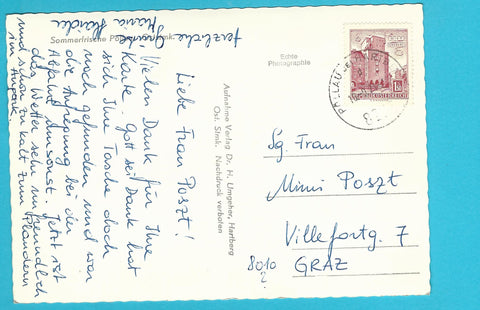 Sommerfrische Pö
Liebe Frau Poszt!
Vielen Dank für Ihre
Karte. Gott sei Dank hat
sich Ihre Tasche doch
noch gefunden und war
die Aufregung bei der
Abfahrt umsonst. Jetzt ist
das Wetter sehr unfreundlich
und schon zu kalt zum Plaudern
im Aupark.
Herzliche Grüsse
Maria
Aufnahme Verlag Dr. H. Umgeher, Hartberg
Ost. Stmk. Nachdruck verboten
Echte
Photographie
REPUBLIK ÖSTERREICH
PÖLLAU
Sg. Frau
Mimi Poszt
Villefortg. 7
8010 GRAZ